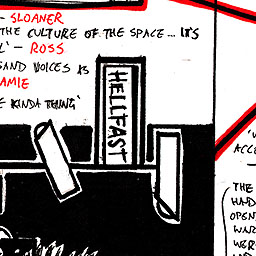 - SLOANER
THE CULTURE OF THE SPACE... IT'S
' - ROSS
SAND VOICES IS
AMIE
E KINDA THING'
HELLFAST
ACCE
THE
HAD
OPEN
WERE